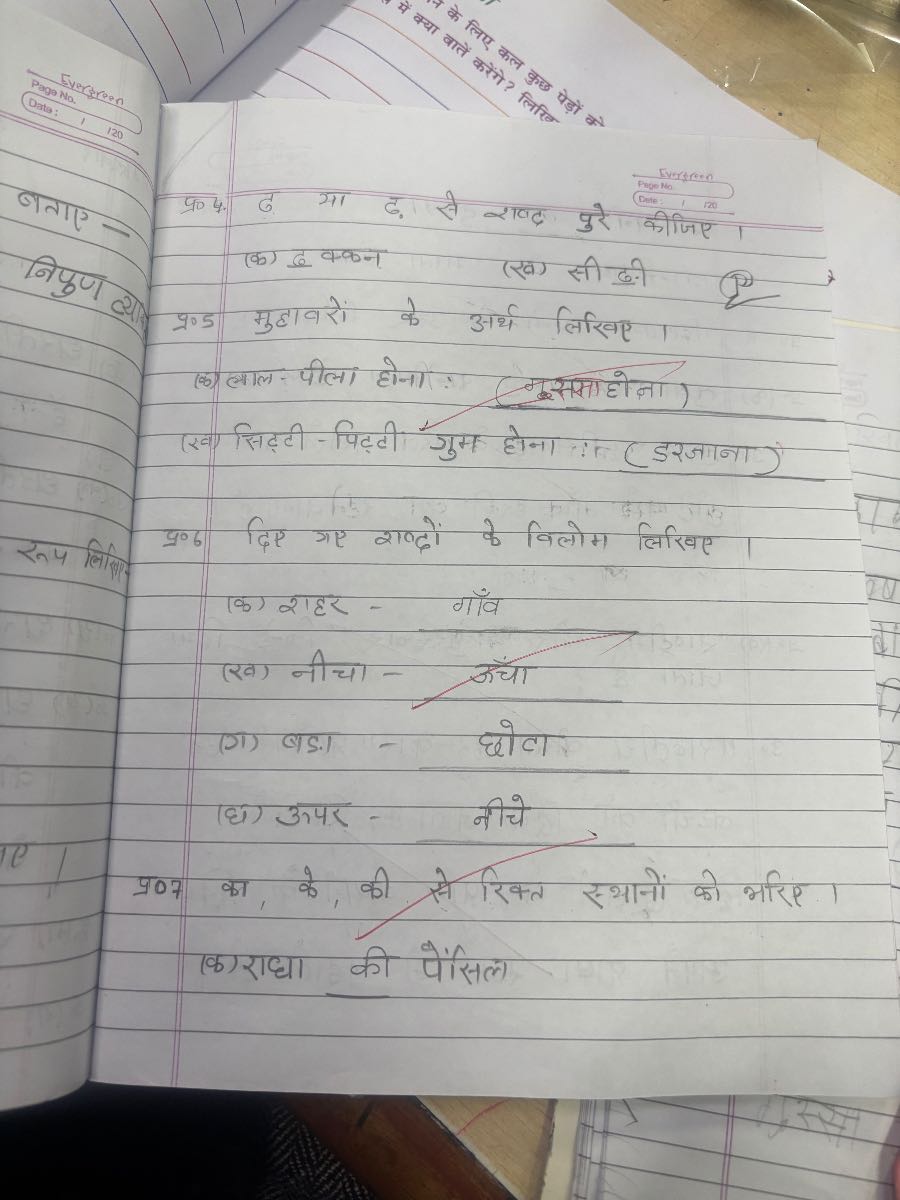 के लिए कल कुछ पेड़ों को
में क्या बातें करेंगे? लिखि
Evergreen
Page No.
Date: / /20
बताए –
निपुण
रूप लिखिए-
Evergreen
Page No.
Date: / /20
प्र०4. ढ या ढ़ से शब्द पुरे कीजिए ।
(क) ढ क्कन (ख) सी ढ़ी
प्र०5 मुहावरों के अर्थ लिखिए ।
(क) लाल - पीला होना : (गुस्सा होना)
(ख) सिट्टी - पिट्टी गुम होना : (डरजाना)
प्र०6 दिए गए शब्दों के विलोम लिखिए ।
(क) शहर – गाँव
(ख) नीचा – ऊँचा
(ग) बड़ा – छोटा
(घ) ऊपर – नीचे
प्र०7 का, के, की से रिक्त स्थानों को भरिए ।
(क) राधा की पेंसिल